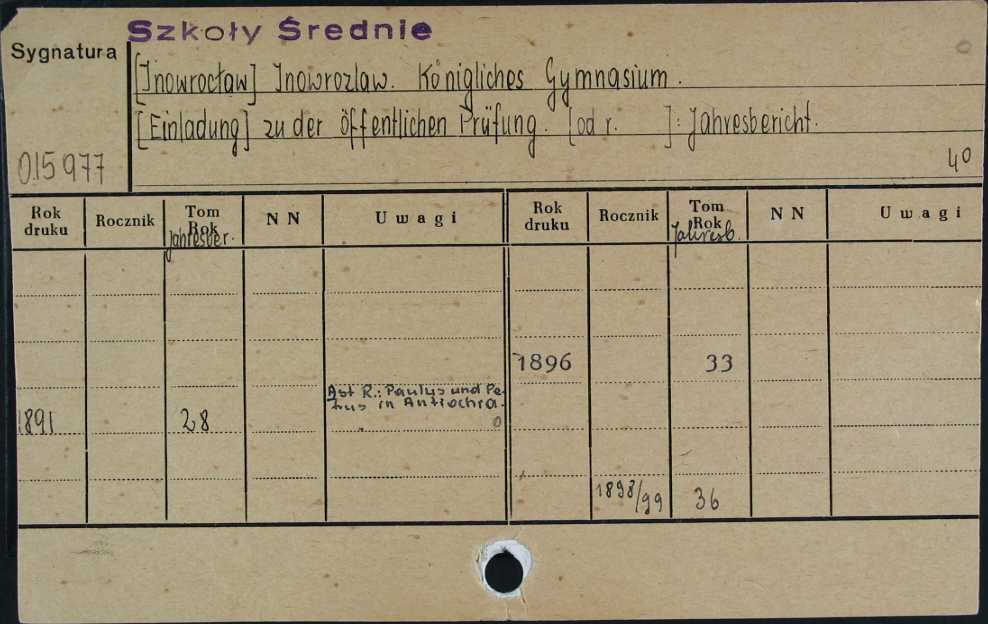 Szkoły Średnie
Sygnatura
[Inowrocław] Inowrozlaw. Königliches Gymnasium.
[Einladung] zu der öffentlichen Prüfung. [od r. ]: Jahresbericht.
015977
4°
Rok druku
Rocznik
Tom Rok
Jahresber.
NN
Uwagi
Rok druku
Rocznik
Tom Rok
Jahresb.
NN
Uwagi
1896 33
Abt R.: Paulus und Pe-
trus in Antiochia.
1891 28
1898/99 36